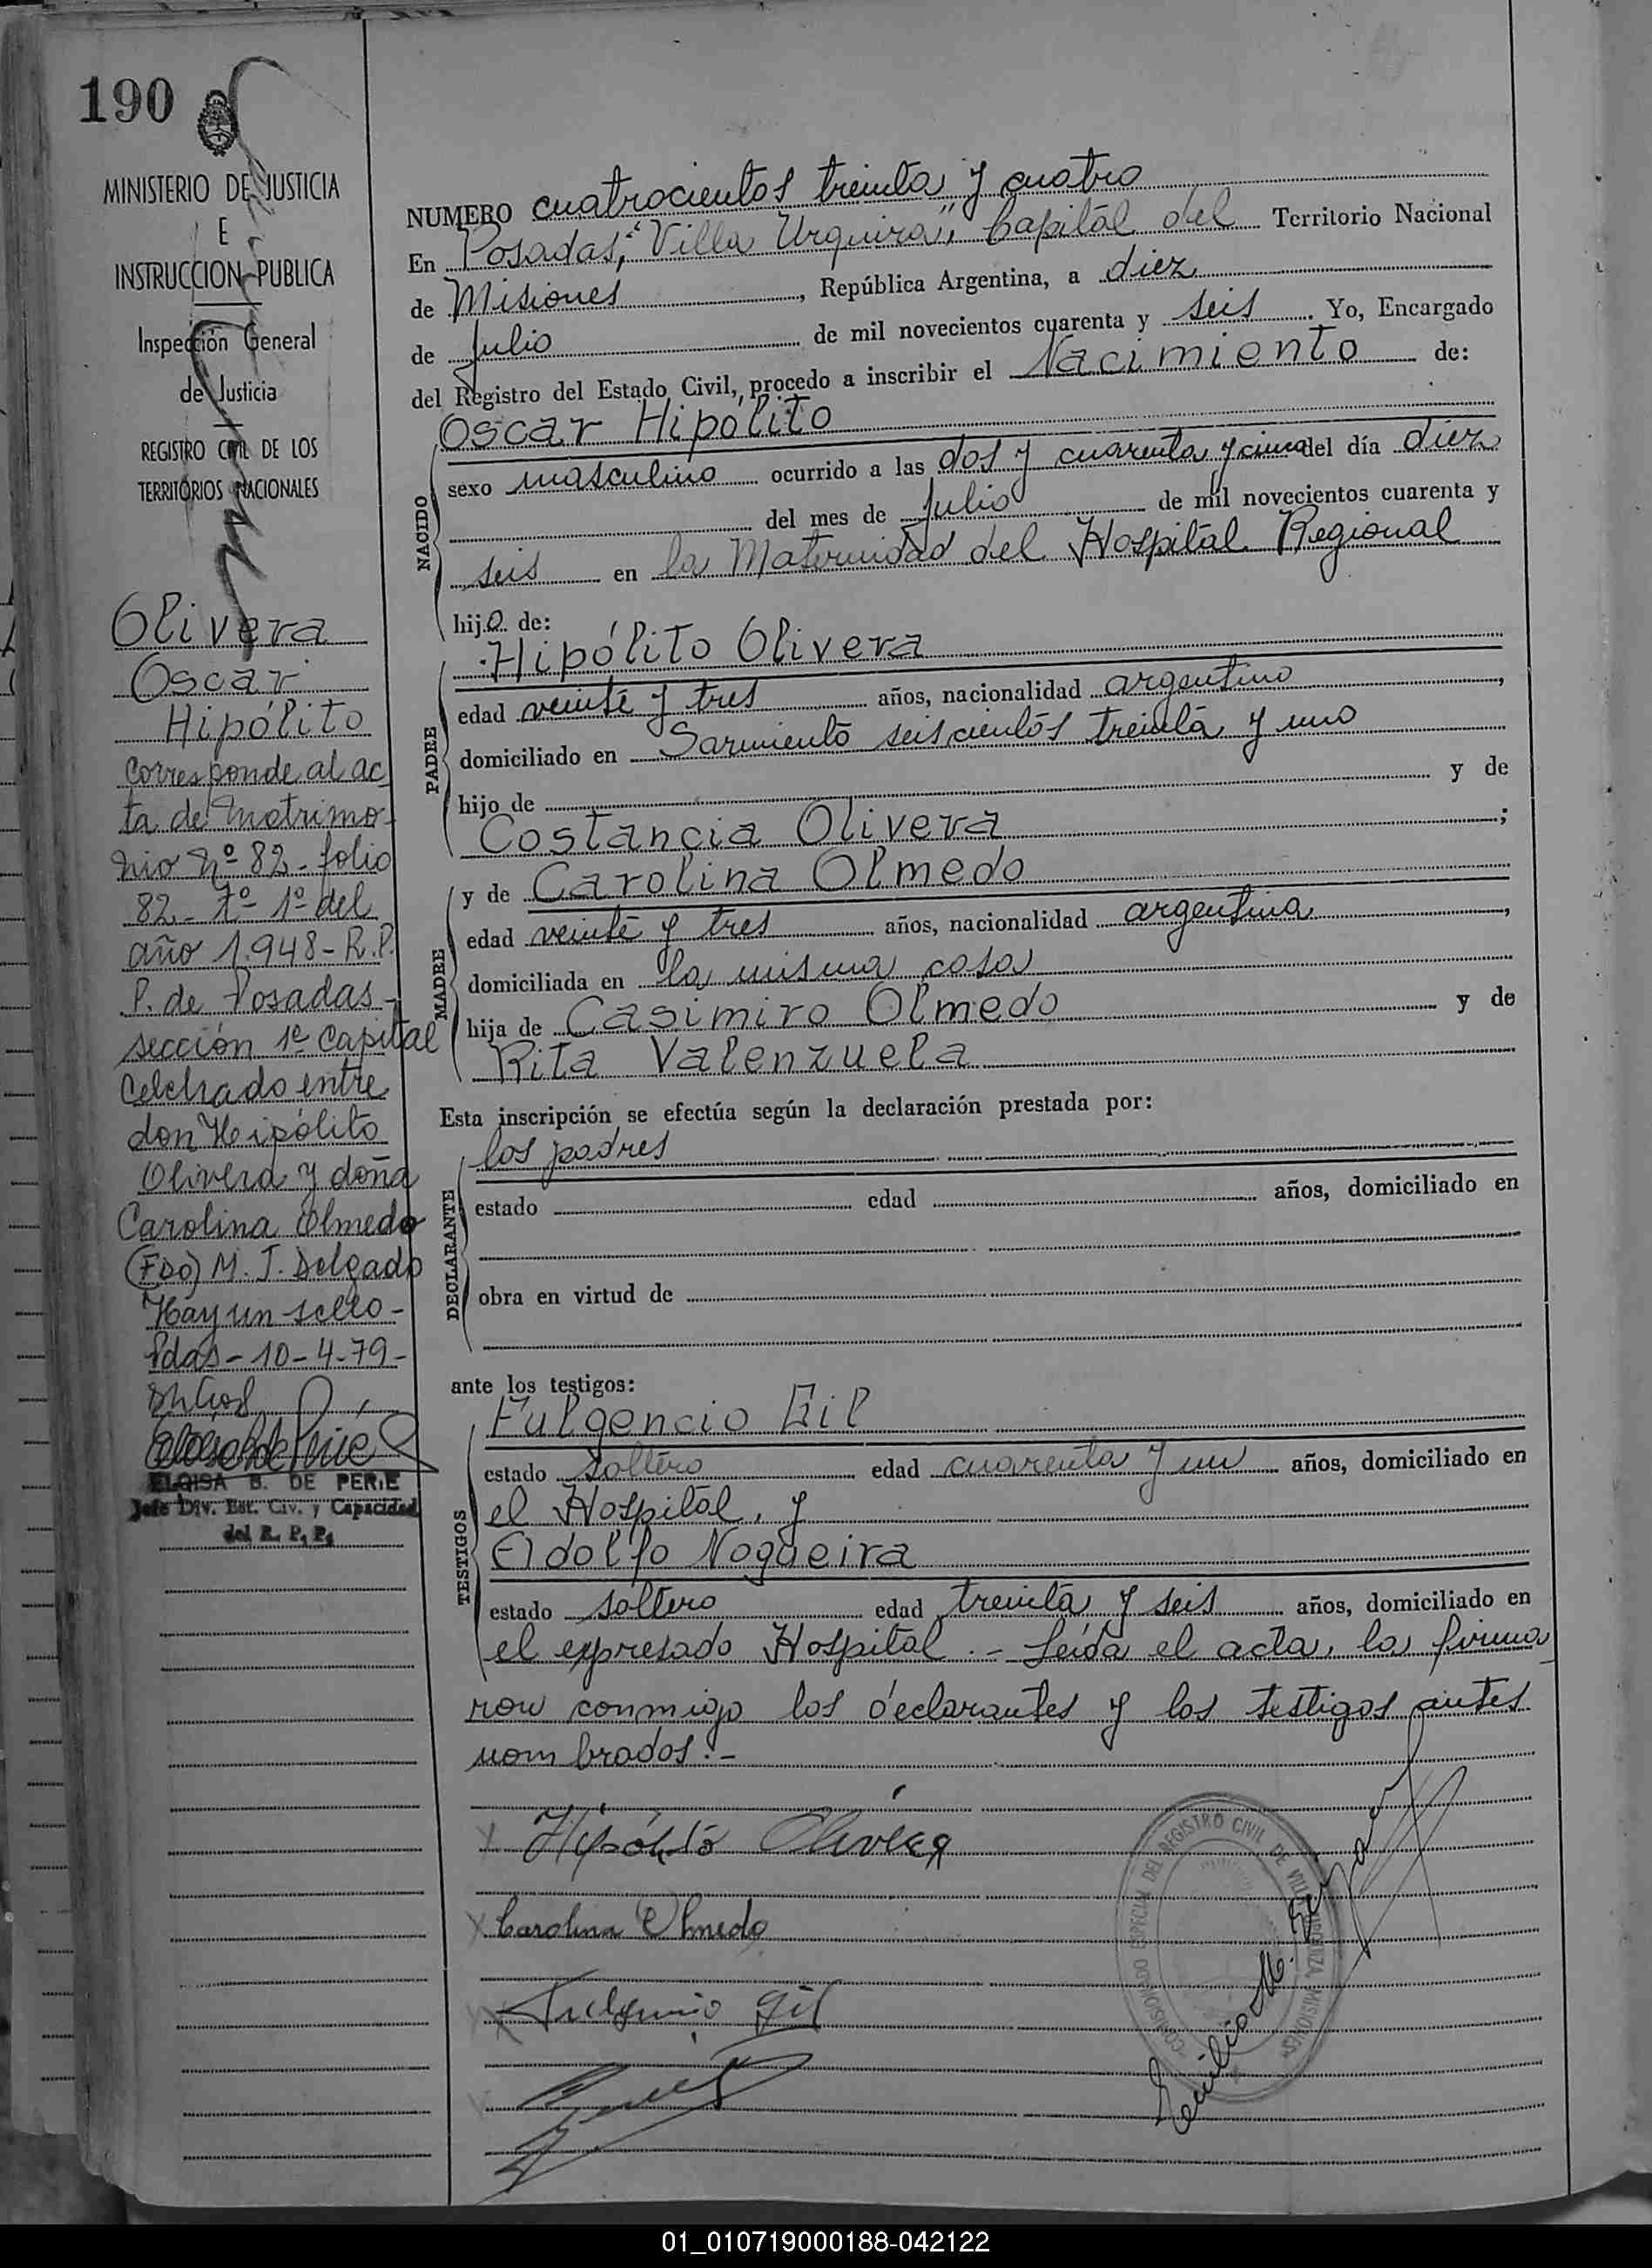 190
MINISTERIO DE JUSTICIA
E
INSTRUCCION PUBLICA
Inspección General
de Justicia
REGISTRO CIVIL DE LOS
TERRITORIOS NACIONALES
Olivera
Oscar
Hipólito
Corresponde al ac
ta de matrimo-
nio Nº 82 - folio
82 - Tº 1º del
año 1.948 - R.P.
P. de Posadas -
sección 1ª Capital
Celebrado entre
don Hipólito
Olivera y doña
Carolina Olmedo
(Fdo) M. J. Delgado
Hay un sello -
Pdas - 10-4-79 -
ELOISA B. DE PERIE
Jefe Div. Est. Civ. y Capacidad
del R. P. P.
NUMERO cuatrocientos treinta y cuatro
En Posadas, "Villa Urquiza", Capital del Territorio Nacional
de Misiones, República Argentina, a diez
de Julio de mil novecientos cuarenta y seis. Yo, Encargado
del Registro del Estado Civil, procedo a inscribir el Nacimiento de:
Oscar Hipólito
NACIDO
sexo masculino ocurrido a las dos y cuarenta y cinco del día diez
del mes de Julio de mil novecientos cuarenta y
seis en la Maternidad del Hospital Regional
hijo de:
Hipólito Olivera
PADRE
edad veinte y tres años, nacionalidad argentino,
domiciliado en Sarmiento seiscientos treinta y uno
hijo de y de
Costancia Olivera;
y de Carolina Olmedo
MADRE
edad veinte y tres años, nacionalidad argentina,
domiciliada en la misma casa
hija de Casimiro Olmedo y de
Rita Valenzuela
Esta inscripción se efectúa según la declaración prestada por:
los padres
DECLARANTE
estado edad años, domiciliado en
obra en virtud de
ante los testigos:
Fulgencio Gil
TESTIGOS
estado soltero edad cuarenta y un años, domiciliado en
el Hospital, y
Adolfo Nogueira
estado soltero edad treinta y seis años, domiciliado en
el expresado Hospital.- Leída el acta, la firma
ron conmigo los declarantes y los testigos antes
nombrados.-
Hipólito Olivera
Carolina Olmedo
Fulgencio Gil
Emilio M.
COMISIONADO ESPECIAL DEL REGISTRO CIVIL DE VILLA URQUIZA MISIONES
01_010719000188-042122